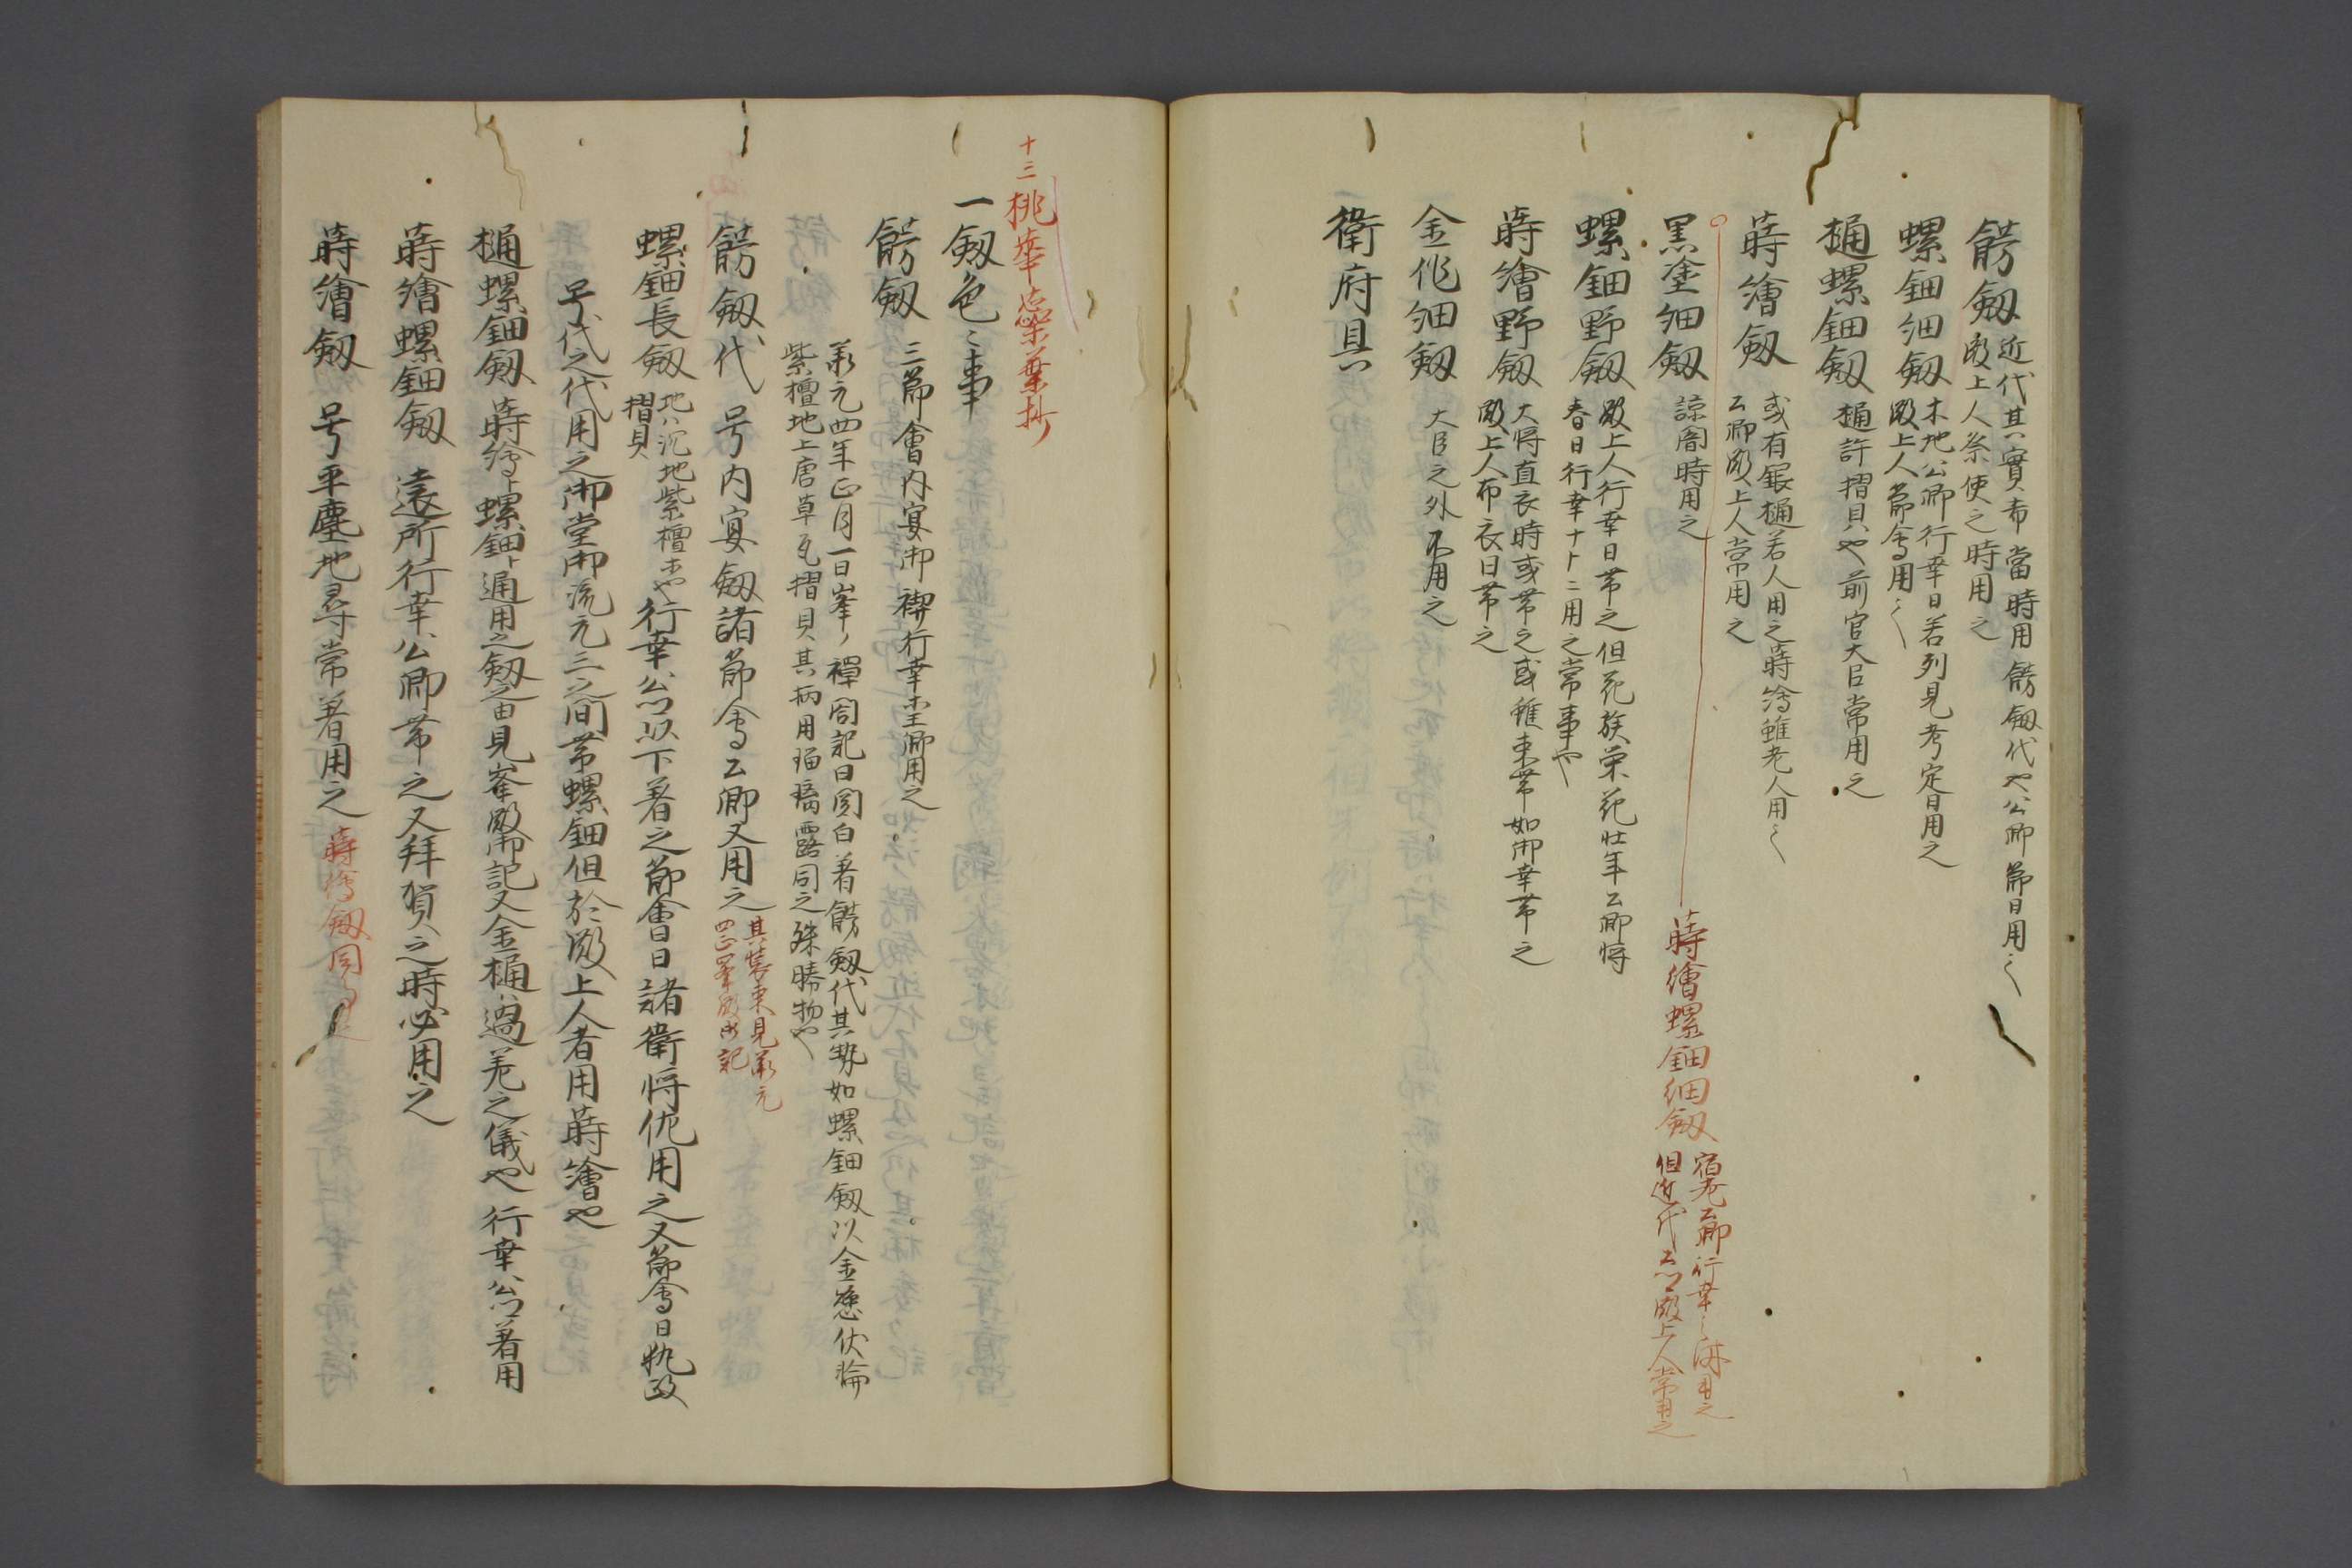 餝剱 近代其實希當時用餝剱代也公卿節日用之
殿上人祭使之時用之
螺鈿細剱 木地公卿行幸日若列見考定日用之
殿上人節會用之
樋螺鈿剱 樋許摺貝也前官大臣常用之
蒔繪剱 或有銀樋若人用之蒔繪雖老人用之
公卿殿上人常用之
黒塗細剱 諒闇時用之
蒔繪螺鈿細剱 宿老公卿行幸之時用之
但近代不殿上人常用之
螺鈿野剱 殿上人行幸日帯之但花族栄花壮年公卿将
春日行幸十卜二用之常事也
蒔繪野剱 大将直衣時或帯之或雖束帯如御幸帯之
殿上人布衣日帯之
金作細剱 大臣之外不用之
衛府具
十三 桃華蘂葉抄
一剱色々事
餝剱 三節會内宴御禊行幸王卿用之
承元四年正月一日峯禅閤記曰関白着餝剱代其勢如螺鈿剱以金為伏輪
紫檀地上唐草瓦摺貝其柄用瑠璃露同之殊勝物也
餝剱代 号内宴剱諸節會公卿又用之 其装束見承元
四正峯殿御記
螺鈿長剱 地ハ沉地紫檀木也
摺貝
行幸公以下著之節會日諸衛将佐用之又節會日執政
号代之代用之御堂御流元三之間帯螺鈿但於殿上人者用蒔繪也
樋螺鈿剱 蒔繪ト螺鈿ト通用之剱之由見峯殿御記又金樋過差之儀也行幸公著用
蒔繪螺鈿剱 遠所行幸公卿帯之又拝賀之時必用之
蒔繪剱 号平塵地尋常著用之 蒔繪剱同事